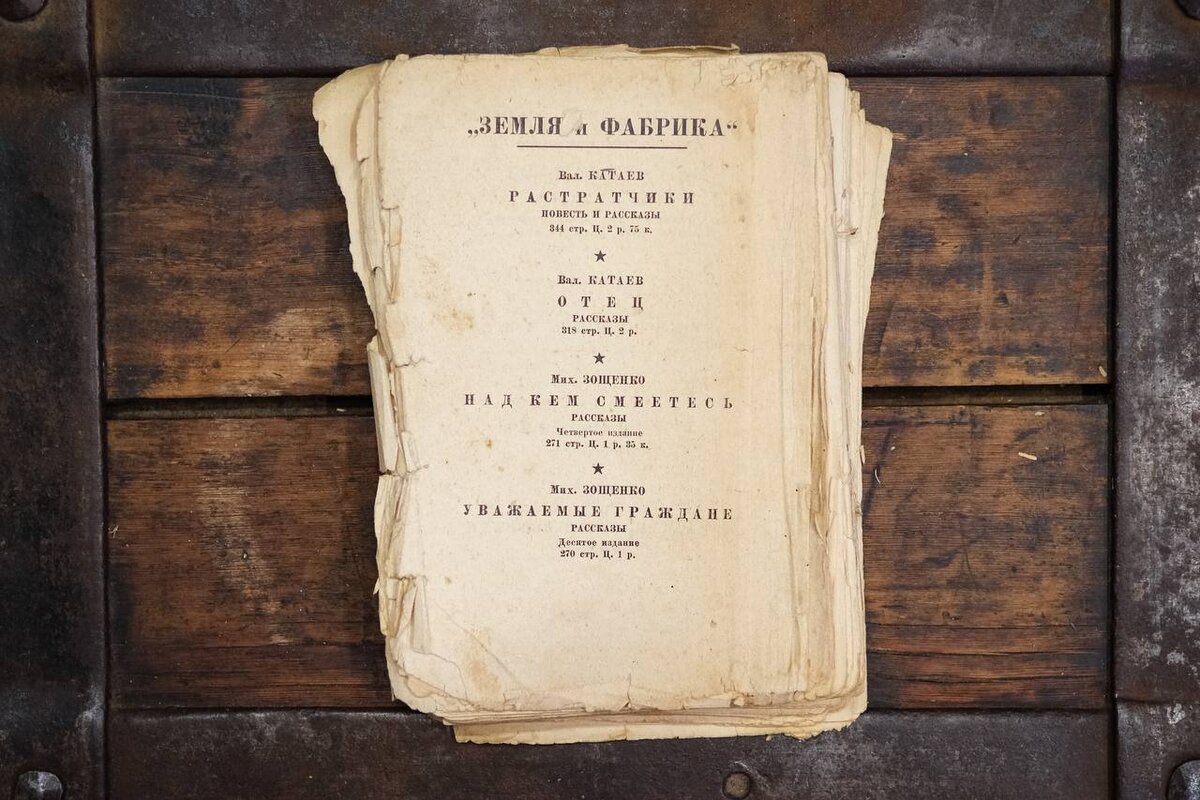 „ЗЕМЛЯ и ФАБРИКА“
Вал. КАТАЕВ
РАСТРАТЧИКИ
ПОВЕСТЬ И РАССКАЗЫ
344 стр. Ц. 2 р. 75 к.
Вал. КАТАЕВ
ОТЕЦ
РАССКАЗЫ
318 стр. Ц. 2 р.
Мих. ЗОЩЕНКО
НАД КЕМ СМЕЕТЕСЬ
РАССКАЗЫ
Четвертое издание
271 стр. Ц. 1 р. 35 к.
Мих. ЗОЩЕНКО
УВАЖАЕМЫЕ ГРАЖДАНЕ
РАССКАЗЫ
Десятое издание
270 стр. Ц. 1 р.